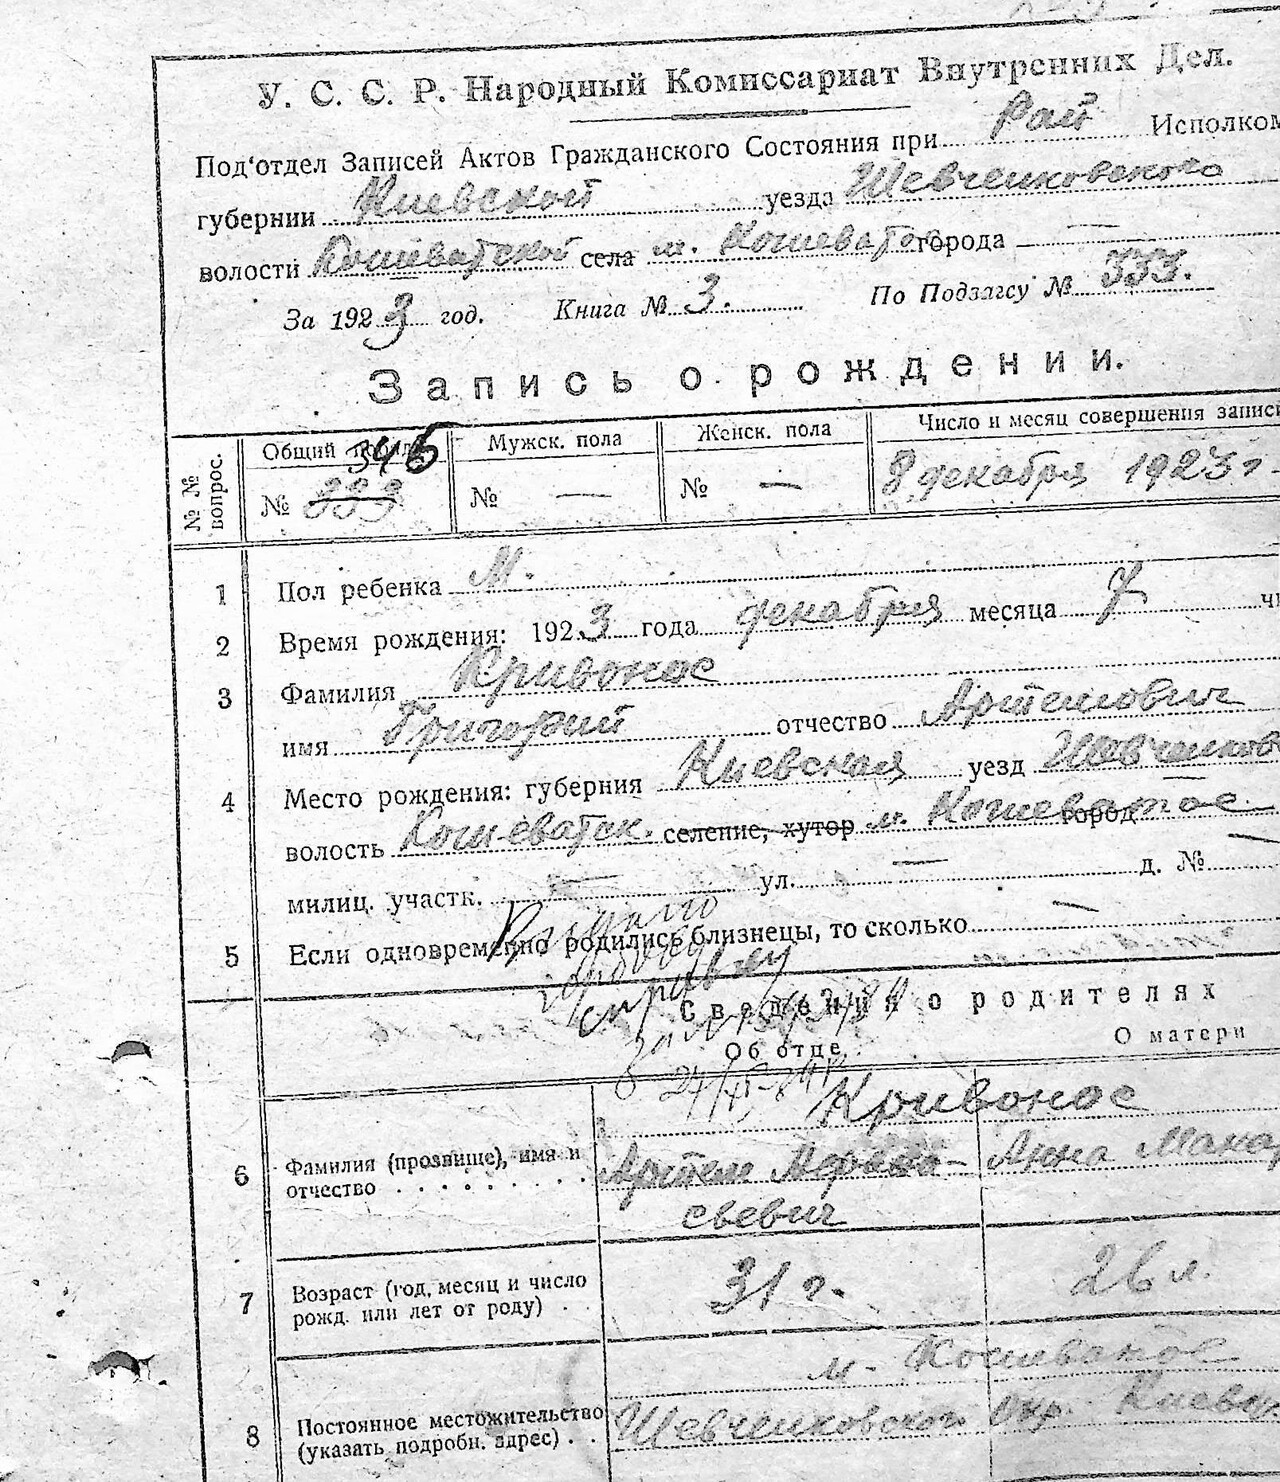 У. С. С. Р. Народный Комиссариат Внутренних Дел.
Под'отдел Записей Актов Гражданского Состояния при Рай Исполком
губернии Киевской уезда Шевченковского
волости Кошеватской села м. Кошеватое города —
За 1923 год. Книга № 3. По Подзагсу № 333.
Запись о рождении.
№№ вопрос.
Общий 346 Мужск. пола Женск. пола Число и месяц совершения записи
№ 333 № — № — 8 декабря 1923 г.
1 Пол ребенка М.
2 Время рождения: 1923 года декабря месяца 7 чи
3 Фамилия Кривонос
имя Григорий отчество Артемович
4 Место рождения: губерния Киевская уезд Шевченков
волость Кошеватск. селение, хутор м. Кошеватое город —
милиц. участк. — ул. — д. № —
5 Если одновременно родились близнецы, то сколько —
Видано
справку
Сведения о родителях
Об отце О матери
Кривонос
6 Фамилия (прозвище), имя и Артем Анна Мака
отчество
сьевич
7 Возраст (год, месяц и число 31 г. 26 л.
рожд. или лет от роду)
м. Кошеватое
8 Постоянное местожительство Шевченковского Окр. Киевс
(указать подробн. адрес)